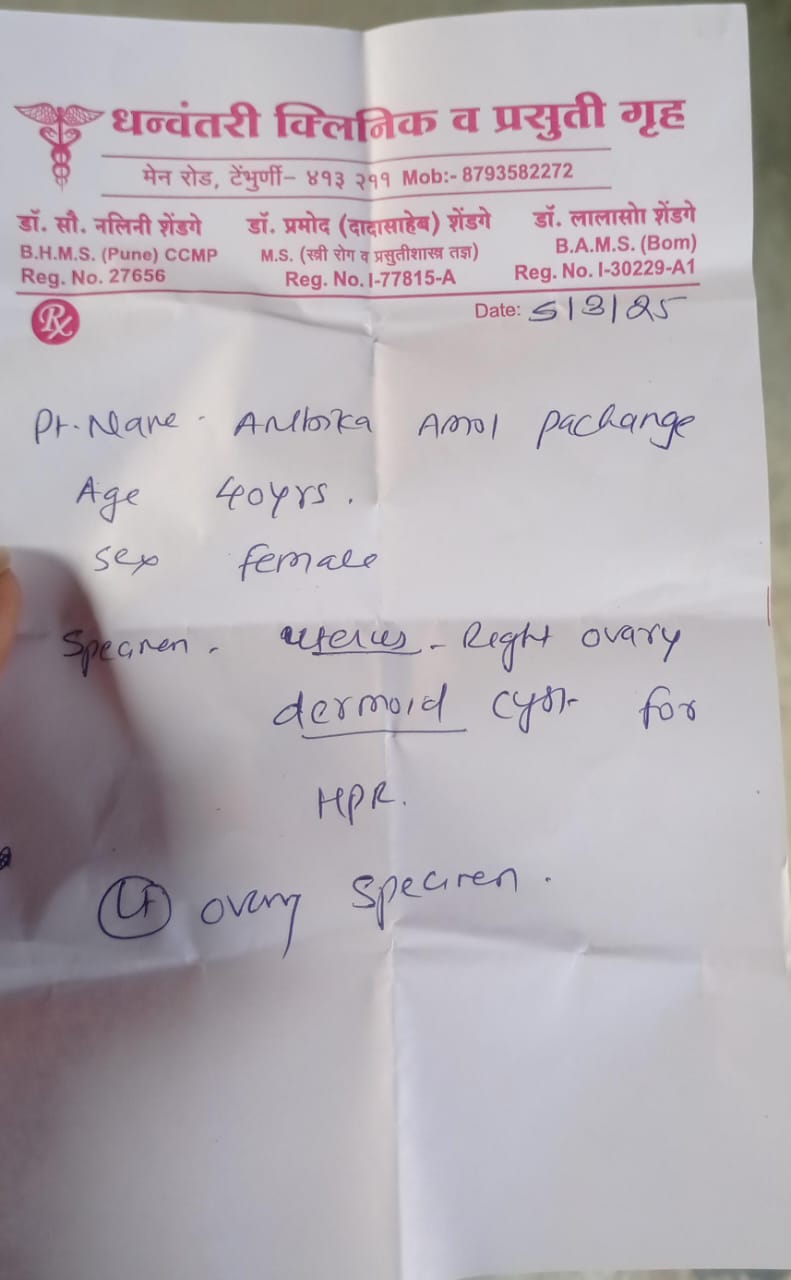 धन्वंतरी क्लिनिक व प्रसुती गृह
मेन रोड, टेंभुर्णी– ४१३ २११ Mob:- 8793582272
डॉ. सौ. नलिनी शेंडगे डॉ. प्रमोद (दादासाहेब) शेंडगे डॉ. लालासो शेंडगे
B.H.M.S. (Pune) CCMP M.S. (स्त्री रोग व प्रसुतीशास्त्र तज्ञ) B.A.M.S. (Bom)
Reg. No. 27656 Reg. No. I-77815-A Reg. No. I-30229-A1
Rx
Date: 5/3/25
Pt. Name - Ambika Amol pachange
Age 40yrs.
Sex female
Specimen - uterus - Right ovary
dermoid cyst for
HPR.
Lt ovary specimen.